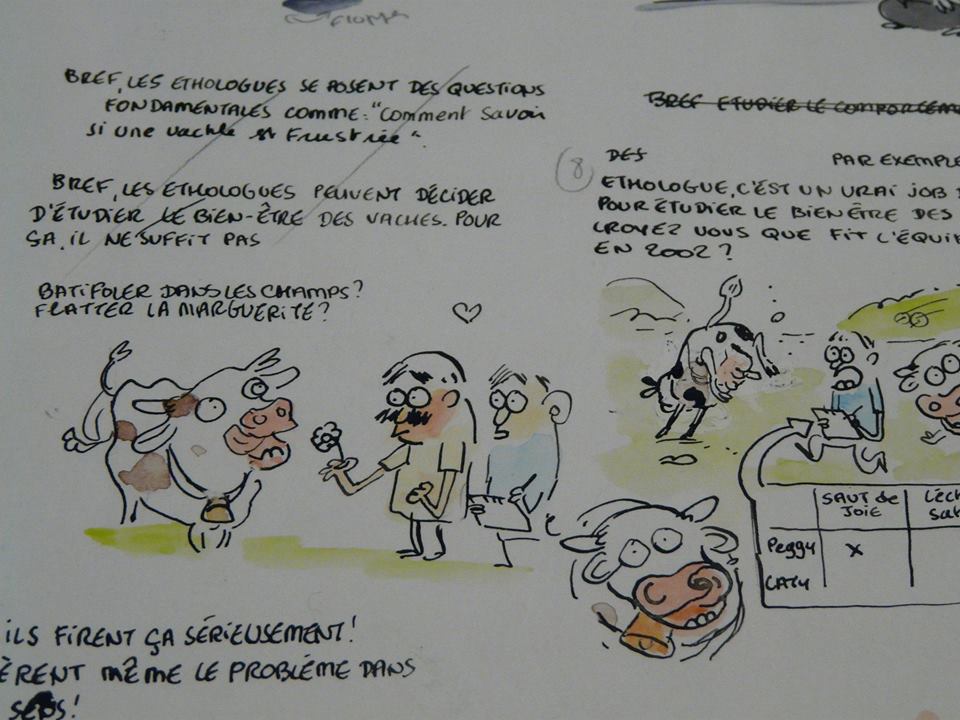 BREF, LES ETHOLOGUES SE POSENT DES QUESTIONS
FONDAMENTALES COMME: "Comment savoir
si une vache est Frustrée".
BREF, LES ETHOLOGUES PEUVENT DÉCIDER
D'ÉTUDIER LE BIEN-ÊTRE DES VACHES. POUR
ÇA, IL NE SUFFIT PAS
BATIFOLER DANS LES CHAMPS?
FLATTER LA MARGUERITE?
ILS FIRENT ÇA SÉRIEUSEMENT!
ÈRENT MÊME LE PROBLÈME DANS
BREF ETUDIER LE COMPORTEME
8
DES PAR EXEMPLE
ETHOLOGUE, C'EST UN VRAI JOB
POUR ÉTUDIER LE BIEN ÊTRE DES
CROYEZ VOUS QUE FIT L'ÉQUI
EN 2002?
SAUT de
JOIE
Peggy x
CATY